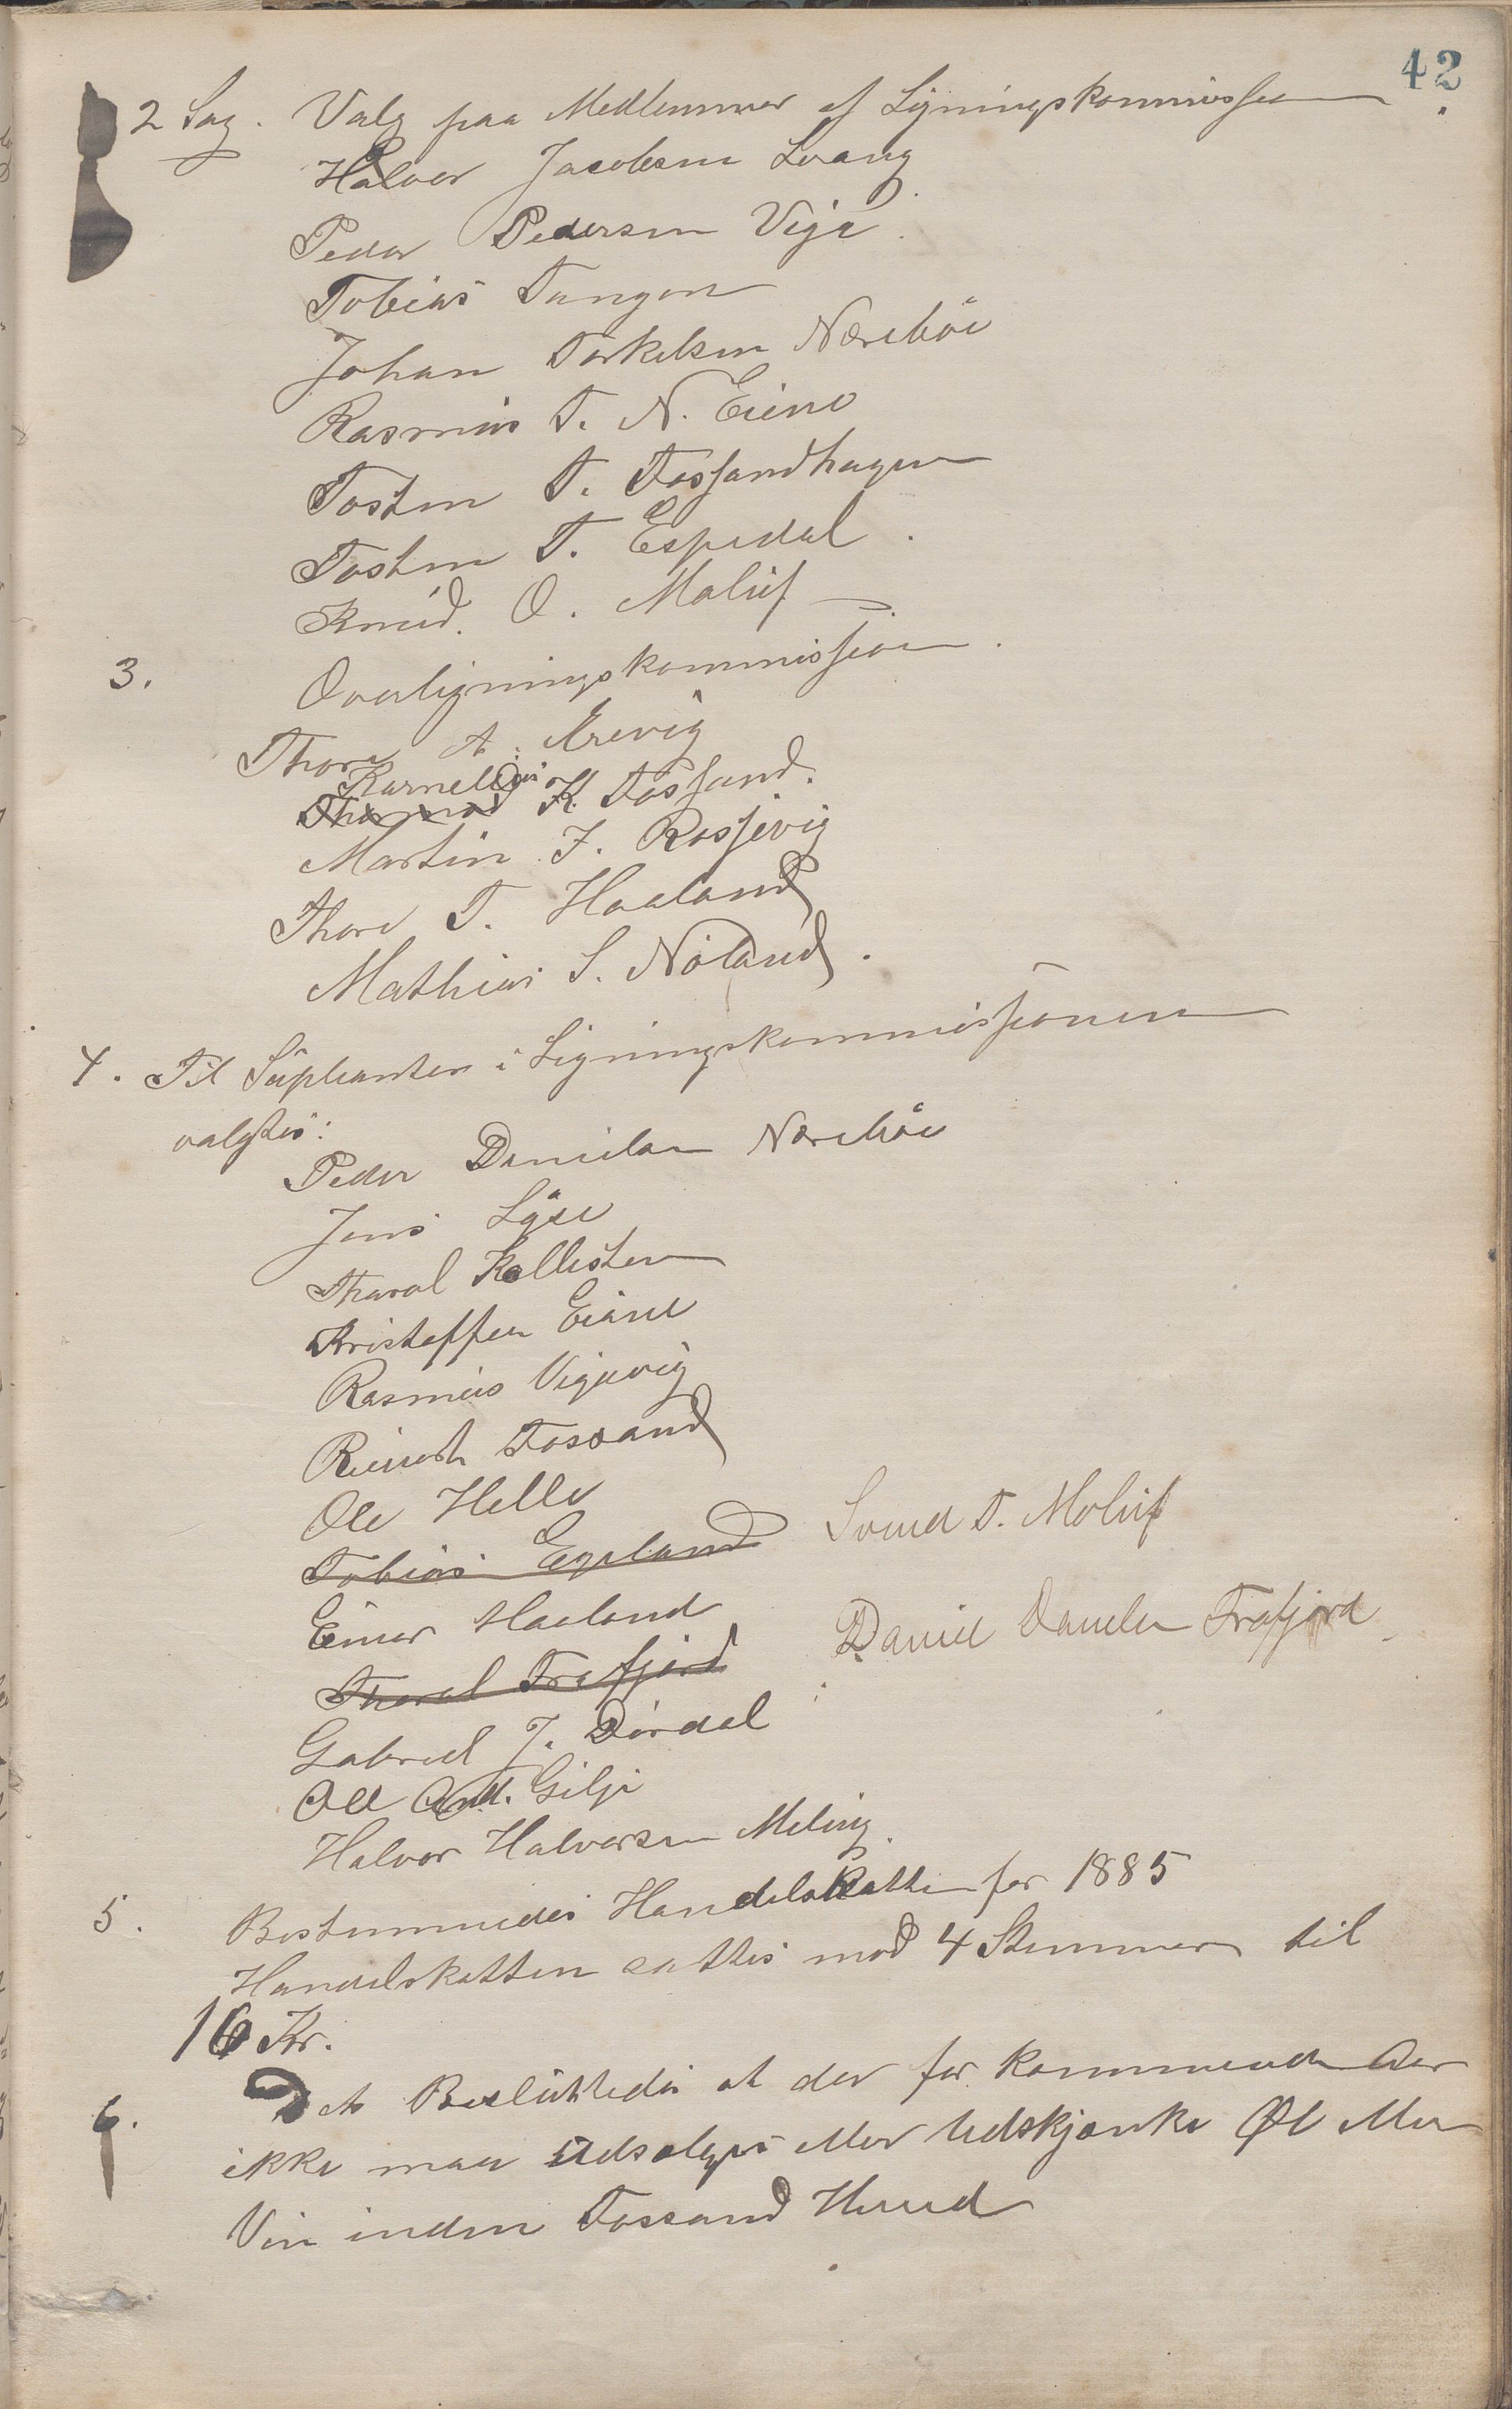 42
2 Sag. Valg paa Medlemmer af Ligningskommissen
Halvor Jacobsen Levang
Peder Pedersen Vige
Tobias Tungen
Johan Torkelsen Nørebøe
Rasmus T. N. Eiene
Tosten T. Fossandhagen
Tosten T. Espedal
Knud O. Moluf
3. Overligningskommission
Thore A. Ærevig
Karnelius
Thormod K. Fossand.
Martin J. Rossevig
Thore T. Haaland
Mathias S. Nøland.
4. Til Suplanter i Ligningskommissionen
valgtes:
Peder Danielsen Nørebøe
Jens Lyse
Tharal Kallesten
Kristoffer Eiane
Rasmus Vigevig
Reinert Fossand
Ole Helle
Tobias Egeland Svend T. Moluf
Einar Haaland
Tharal Frafjord Daniel Danielsen Frafjord
Gabriel J. Dirdal
Ole And. Gilje
Halvor Halvorsen Meling.
5. Bestemmedes Handelskatten for 1885
Handelskatten sattes mod 4 Stemmer til
16 Kr.
6. Det Beslüttedes at der for kommende Aar
ikke maa Udsælges eller Udskjænkes Øl eller
Vin inden Fossand Herred